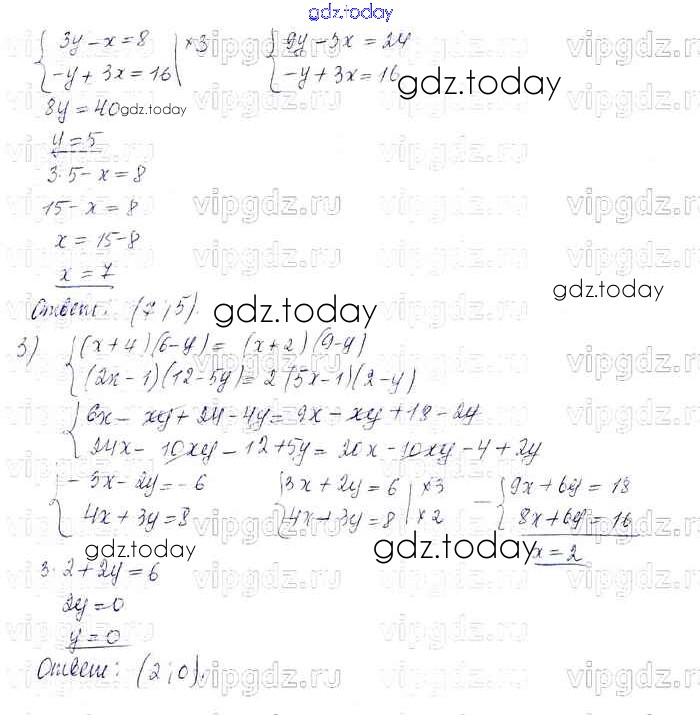 gdz.today
{ 3y - x = 8 | ×3 { 9y - 3x = 24
{ -y + 3x = 16 { -y + 3x = 16
8y = 40
gdz.today
gdz.today
y = 5
3·5 - x = 8
15 - x = 8
x = 15 - 8
x = 7
Ответ: (7; 5).
gdz.today
gdz.today
3) { (x+4)(6-y) = (x+2)(9-y)
{ (2x-1)(12-5y) = 2(5x-1)(2-y)
{ 6x - xy + 24 - 4y = 9x - xy + 18 - 2y
{ 24x - 10xy - 12 + 5y = 20x - 10xy - 4 + 2y
{ -3x - 2y = -6 { 3x + 2y = 6 | ×3 - { 9x + 6y = 18
{ 4x + 3y = 8 { 4x + 3y = 8 | ×2 { 8x + 6y = 16
x = 2
gdz.today
gdz.today
3·2 + 2y = 6
2y = 0
y = 0
Ответ: (2; 0).
vipgdz.ru